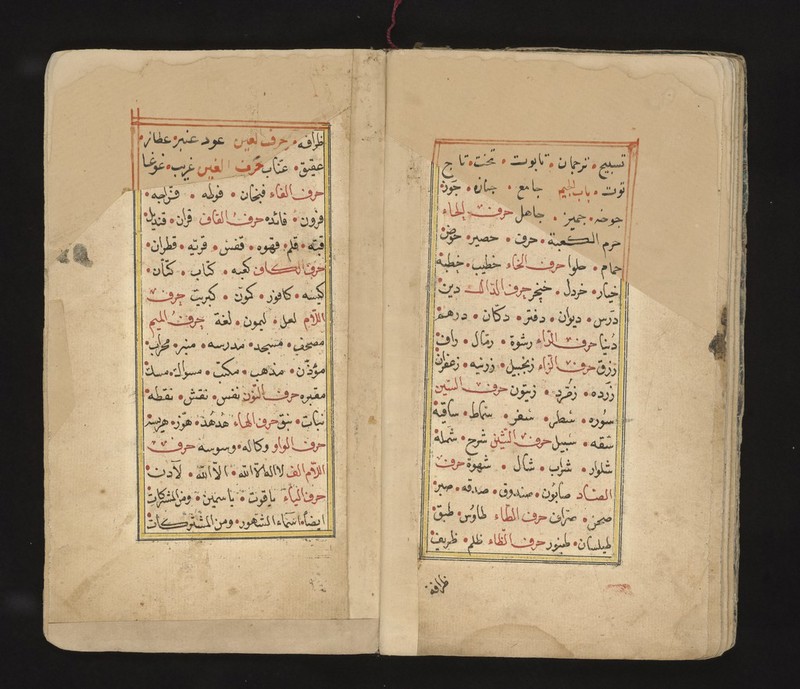 تسبيح ترجمان تابوت تخت تاج
توت باب الجيم جامع جنازه جوزه
جوخه جميز جاهل حرف الحاء
حرم الكعبة حرف حصير حوض
حمام حلوا حرف الخاء خطيب خطبة
خيار خردل خنجر حرف الدال دين
درس ديوان دفتر دكان درهم
دنيا حرف الراء رشوة رمال راف
زرق حرف الزاء زنجبيل زرنيه زعفران
زرده زمرد زيتون حرف السين
سوره سطر سفر سماط ساقيه
سقه سبيل حرف الشين شرح شمله
شلوار شراب شال شهوة حرف
الصاد صابون صندوق صدقه صبر
صحن صراف حرف الطاء طاوس طبق
طيلسان طنبور حرف الظاء ظلم ظريف
ظرافة
ظرافه حرف العين عود عنبر عطار
عقيق عناب حرف الغين غريب غوغا
حرف الفاء فنجان فوطه فراجه
فرون فائده حرف القاف قران قنديل
قبه قلم قهوه قفس قريه قطران
حرف الكاف كعبه كتاب كتان
كيسه كافور كمون كبريت حرف
اللام لعل ليمون لغة حرف الميم
مصحف مسجد مدرسه منبر محراب
مؤذن مذهب مكتب مسواك مسك
مقبره حرف النون نفس نقش نقطه
نبات نبق حرف الهاء هدهد هريسه
حرف الواو وكاله وسوسه حرف
اللام الف لا اله الا الله لادن
حرف الياء ياقوت ياسمين ومن المشتركات
ايضا اسماء الشهور ومن المشتركات